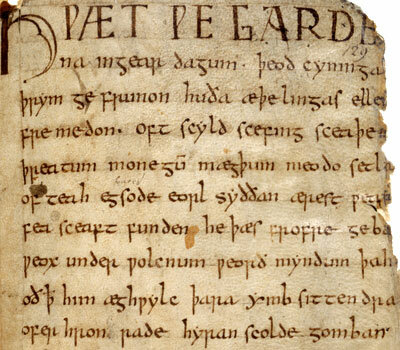 HǷÆT ǷE GARDE
129
na ingear dagum. þeod cyninga
þrym ge frunon huða æþelingas elle
fre medon. oft scyld scefing sceaþe
þreatum monegū mægþum meodo setla
of teah egsode eorl syððan ærest ƿear
fea sceaft funden he þæs frofre geba
ƿeox under ƿolcnum ƿeorð myndum þah
oðꝥ him æghƿylc þara ymb sittendra
ofer hron rade hyran scolde gomban